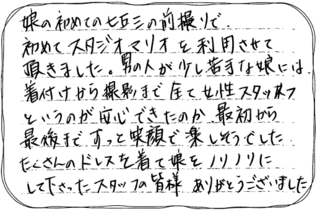 娘の初めての七五三の前撮りで、
初めてスタジオマリオを利用させて
頂きました。男の人が少し苦手な娘には、
着付けから撮影まで全て女性スタッフ
というのが安心できたのか、最初から
最後までずっと笑顔で楽しそうでした
たくさんのドレスを着て娘をノリノリに
して下さったスタッフの皆様 ありがとうございました